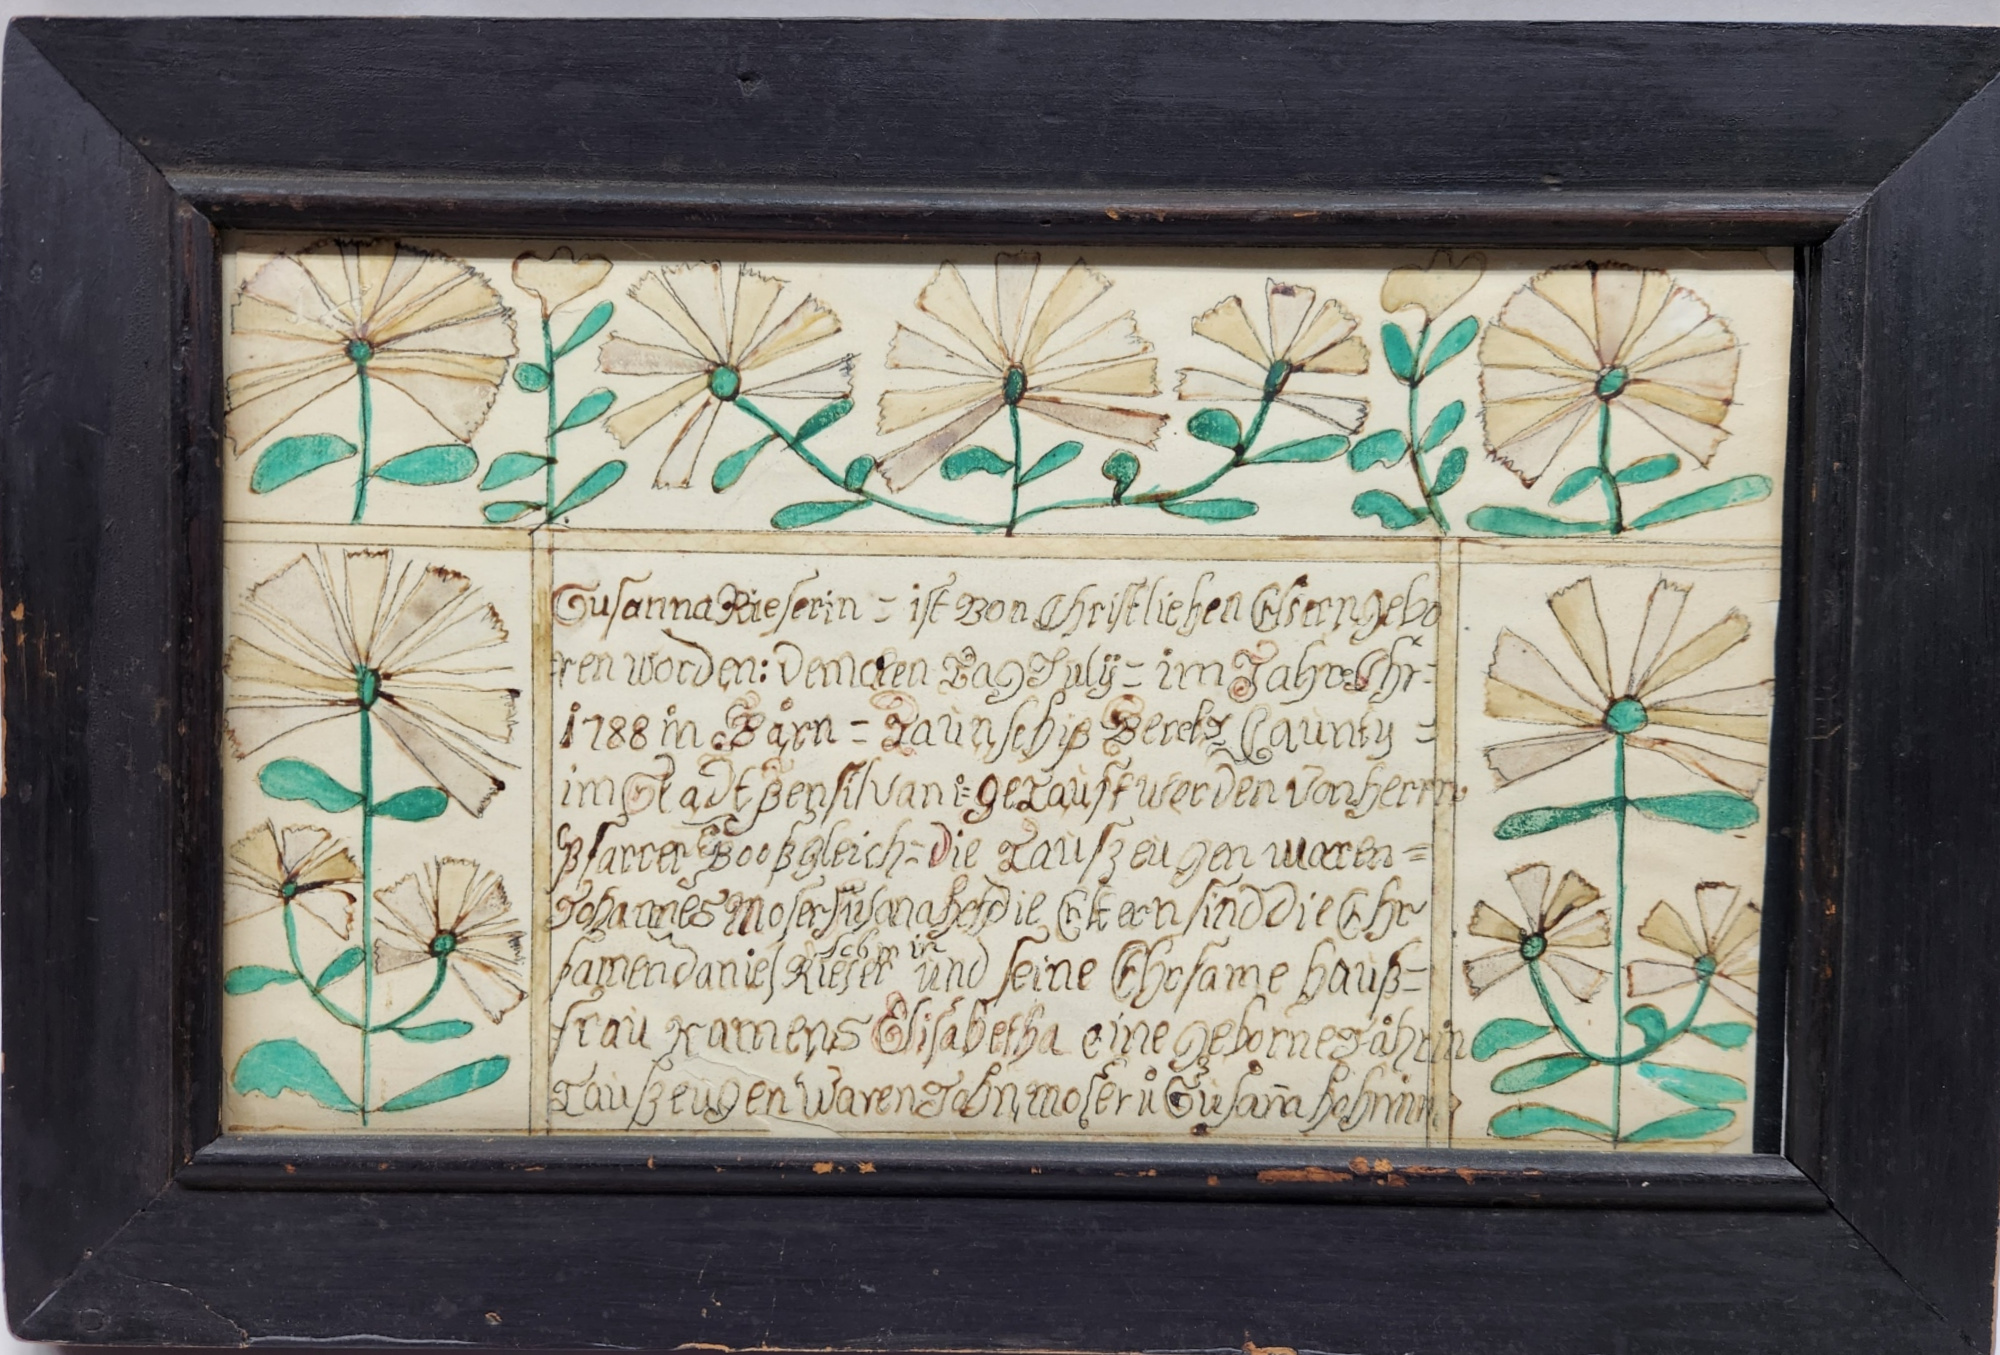 Susanna Rieserin = ist Von Christlichen Eltern gebo
ren worden: den Tag July = im Jahr Chr-
1788 in Bärn = Taunschip Bercks Caunty =
im Stadt Pensilvani= getauft worden von herrn
Pfarrer Boos gleich = die Taufzeugen waren =
Johannes Moser die Eltern sind die Ehr
samen daniel Rieser und seine Ehrsame hauß=
frau Namens Elisabetha eine geborne
Taufzeugen Waren John moser u Susanna